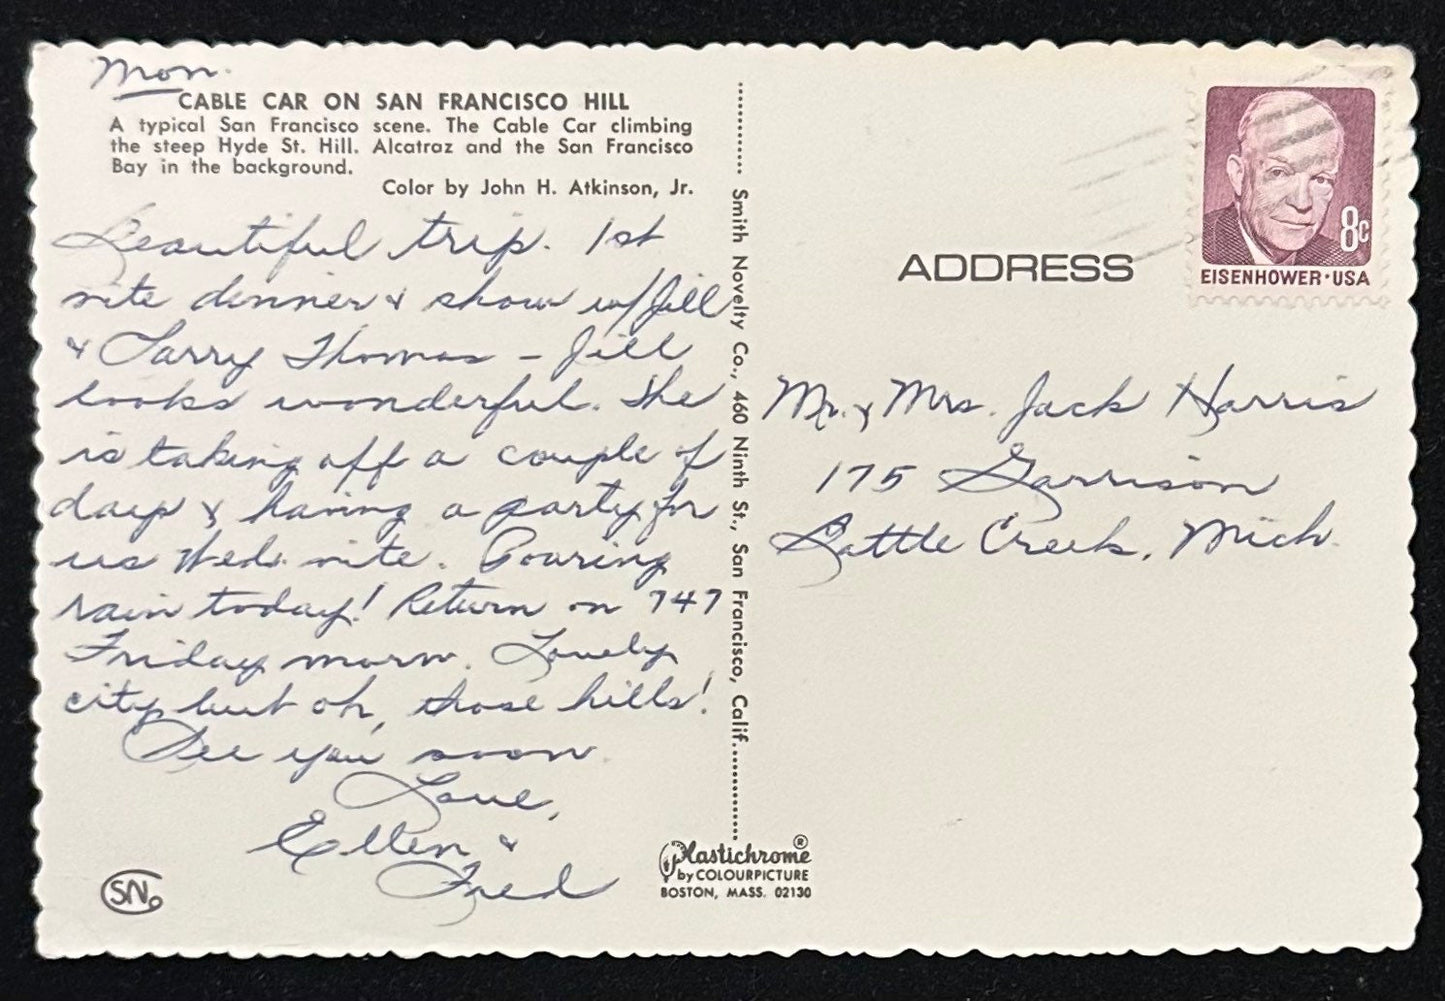 Mon.
CABLE CAR ON SAN FRANCISCO HILL
A typical San Francisco scene. The Cable Car climbing
the steep Hyde St. Hill. Alcatraz and the San Francisco
Bay in the background.
Color by John H. Atkinson, Jr.
Beautiful trip. 1st
nite dinner & show w/ Jill
& Larry Thomas – Jill
looks wonderful. She
is taking off a couple of
days & having a party for
us Wed. nite. Pouring
rain today! Return on 747
Friday morn. Lovely
city but oh, those hills!
See you soon
Love,
Ellen &
Fred
SN.
Smith Novelty Co., 460 Ninth St., San Francisco, Calif.
Plastichrome®
by COLOURPICTURE
BOSTON, MASS. 02130
8c
EISENHOWER·USA
ADDRESS
Mr. & Mrs. Jack Harris
175 Garrison
Battle Creek, Mich.